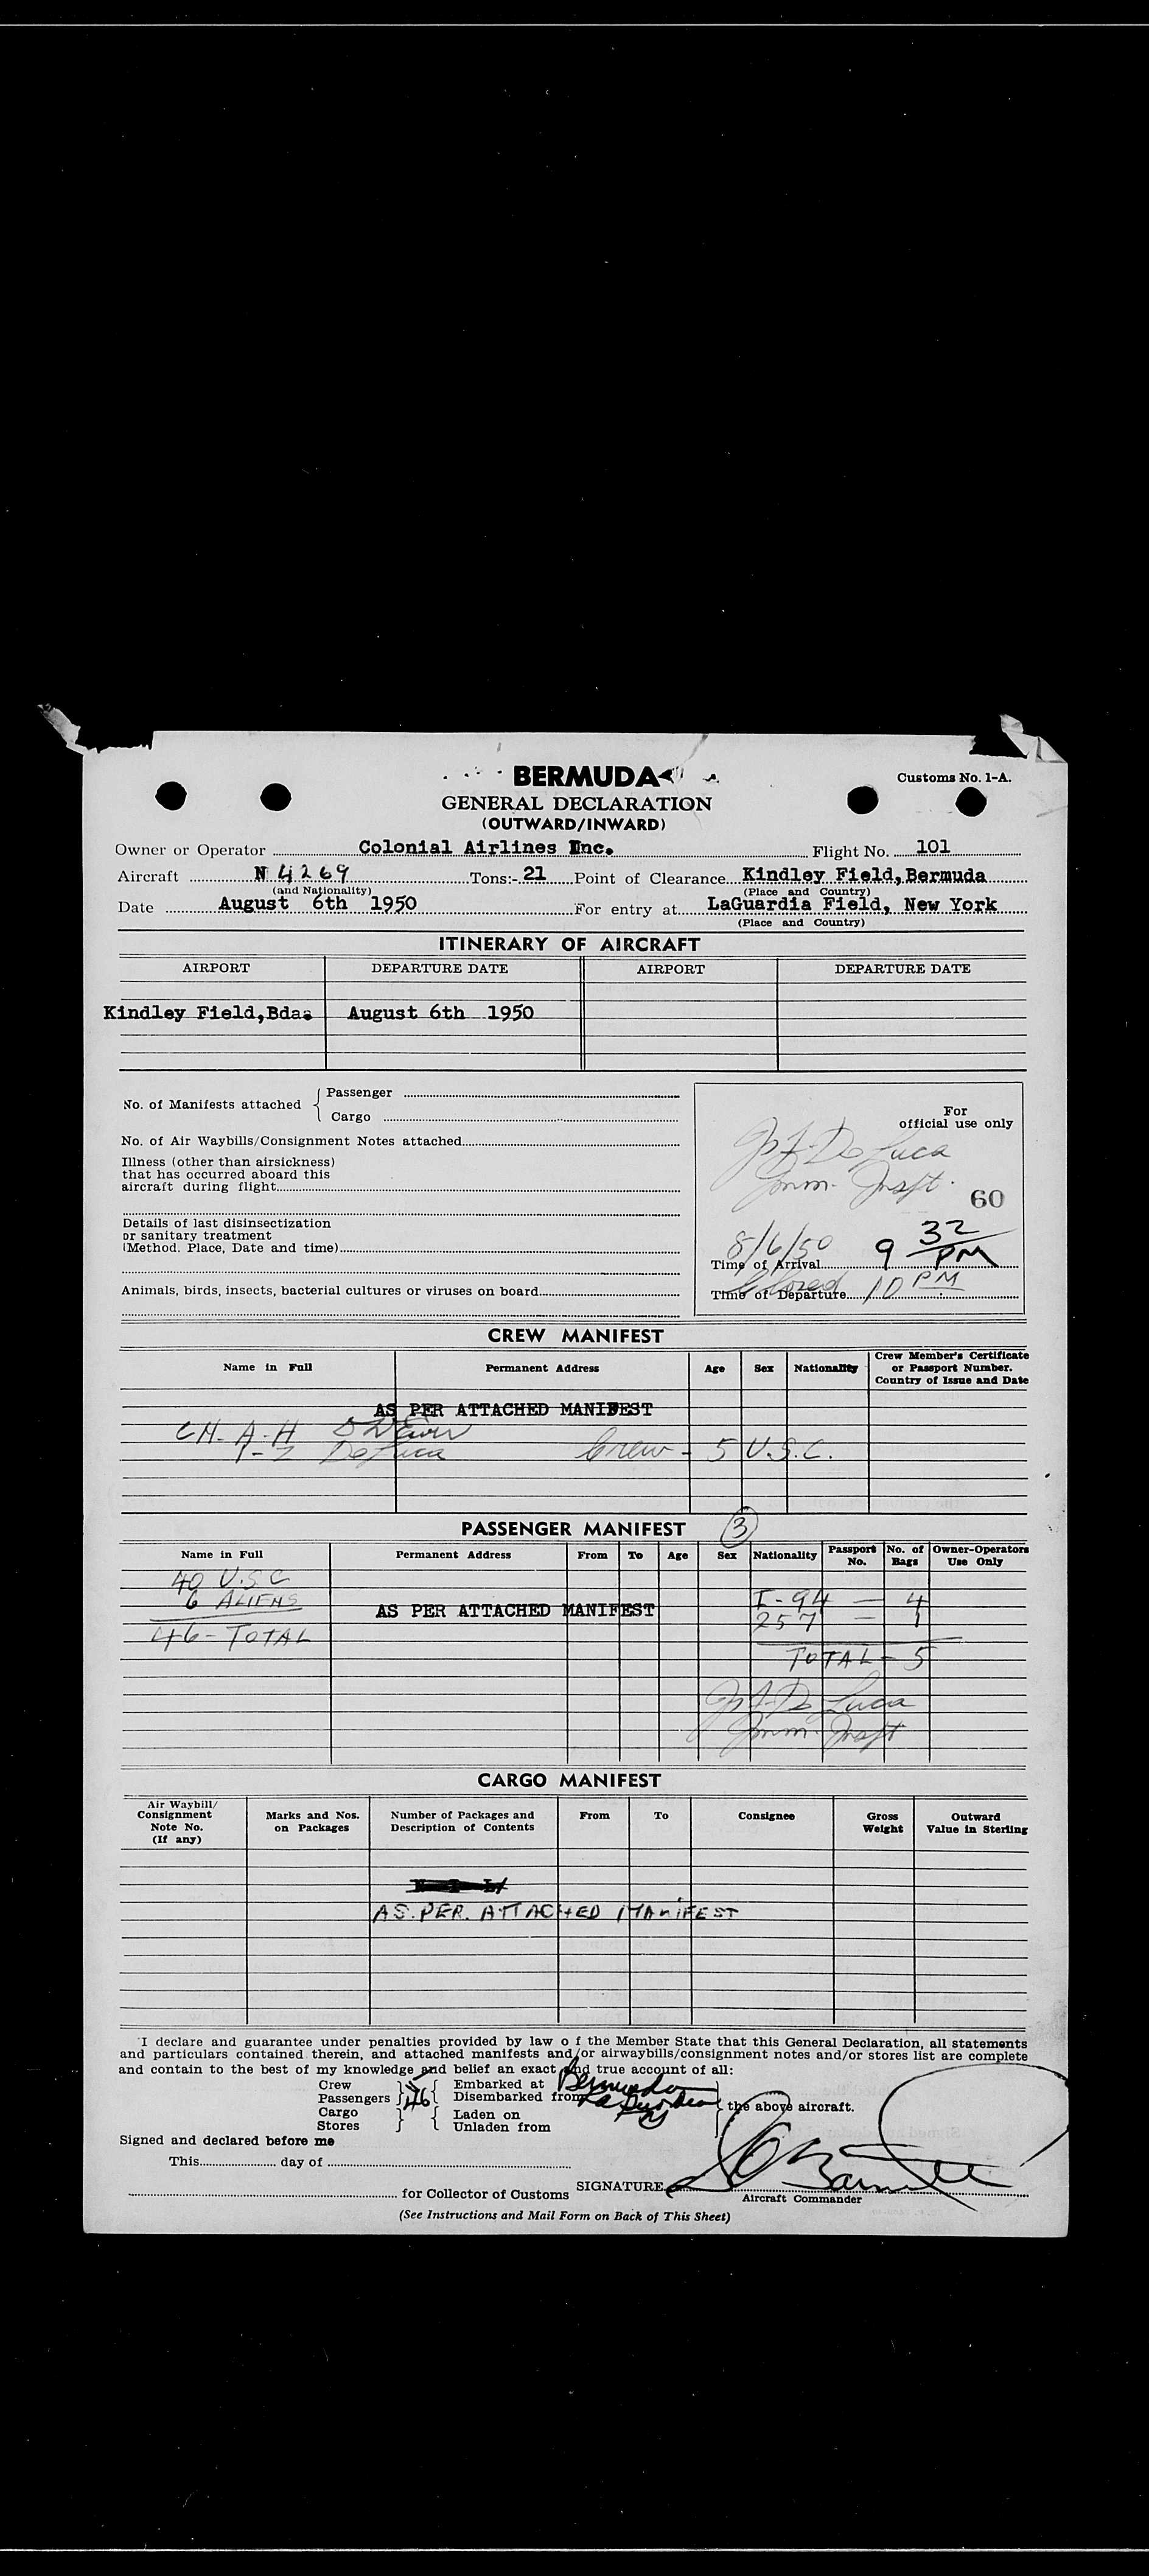 BERMUDA
Customs No. 1-A.
GENERAL DECLARATION
(OUTWARD/INWARD)
Owner or Operator Colonial Airlines Inc. Flight No. 101
Aircraft N 4269 Tons:- 21 Point of Clearance Kindley Field, Bermuda
(and Nationality) (Place and Country)
Date August 6th 1950 For entry at LaGuardia Field, New York
(Place and Country)
ITINERARY OF AIRCRAFT
AIRPORT DEPARTURE DATE AIRPORT DEPARTURE DATE
Kindley Field, Bda. August 6th 1950
No. of Manifests attached { Passenger
Cargo
For
official use only
No. of Air Waybills/Consignment Notes attached
De Luca
Illness (other than airsickness)
that has occurred aboard this
aircraft during flight
Imm. Inspt.
60
Details of last disinsectization
or sanitary treatment
(Method. Place, Date and time)
8/6/50 9 32 PM
Time of Arrival
Closed 10 PM
Animals, birds, insects, bacterial cultures or viruses on board
Time of Departure
CREW MANIFEST
Name in Full Permanent Address Age Sex Nationality Crew Member's Certificate
or Passport Number.
Country of Issue and Date
AS PER ATTACHED MANIFEST
CH - A - H
1 - 2 DeLuca Crew - 5 U.S.C.
PASSENGER MANIFEST 3
Name in Full Permanent Address From To Age Sex Nationality Passport No. No. of Bags Owner-Operators Use Only
40 U.S.C
6 ALIENS I-94 — 4
AS PER ATTACHED MANIFEST 257 — 1
46 - TOTAL
TOTAL - 5
De Luca
Imm. Inspt
CARGO MANIFEST
Air Waybill/
Consignment
Note No.
(If any)
Marks and Nos.
on Packages
Number of Packages and
Description of Contents
From To Consignee
Gross
Weight
Outward
Value in Sterling
AS. PER. ATTACHED MANIFEST
I declare and guarantee under penalties provided by law o f the Member State that this General Declaration, all statements
and particulars contained therein, and attached manifests and/or airwaybills/consignment notes and/or stores list are complete
and contain to the best of my knowledge and belief an exact and true account of all:
Crew 5 Embarked at Bermuda
Passengers 46 Disembarked from LaGuardia NY the above aircraft.
Cargo Laden on
Stores Unladen from
Signed and declared before me
This day of
for Collector of Customs SIGNATURE
Aircraft Commander
(See Instructions and Mail Form on Back of This Sheet)